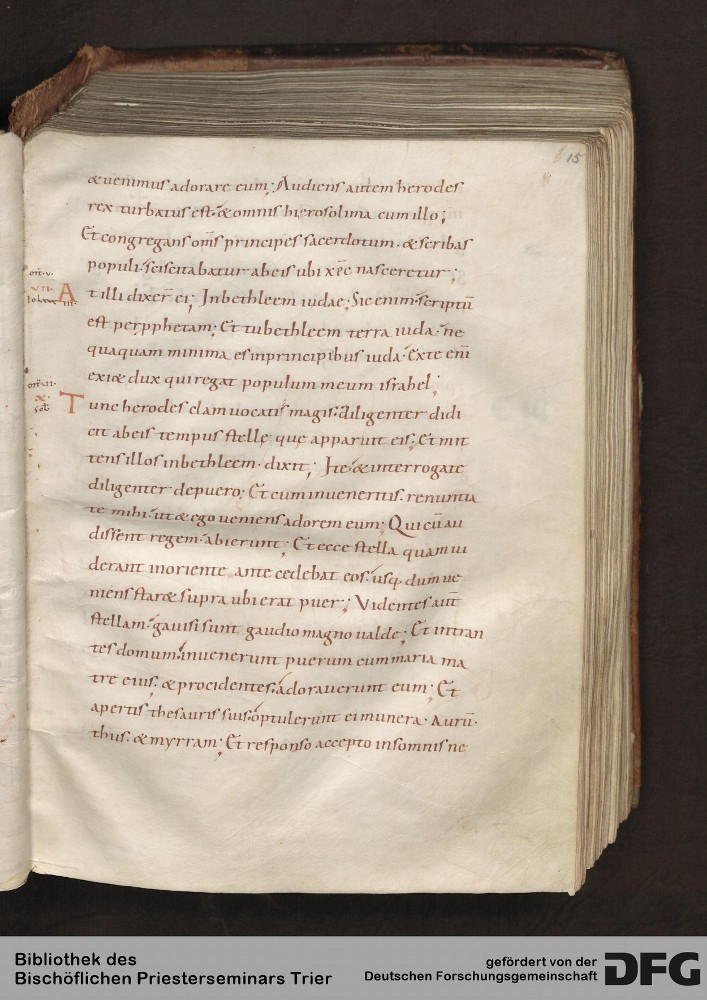 15
&uenimus adorare eum; Audiens autem herodes
rex turbatus est. & omnis hierosolima cum illo;
Et congregans om̄s principes sacerdotum. & scribas
populi. sciscitabatur ab eis ubi xp̄c nasceretur;
At illi dixer̄ ei; In bethleem iudae; Sic enim scriptū
est per pphetam; Et tu bethleem terra iuda. ne
quaquam minima es in principibus iuda. Ex te enī
exi& dux qui regat populum meum israhel;
Tunc herodes clam uocatis magis. diligenter didi
cit ab eis tempus stellę que apparuit eis; Et mit
tens illos in bethleem. dixit; Ite. & interrogate
diligenter de puero; Et cum inueneritis. renuntia
te mihi. ut & ego ueniens adorem eum; Qui cū au
dissent regem. abierunt; Et ecce stella quam ui
derant in oriente ante cedebat eos. usq. dum ue
niens star& supra ubi erat puer; Videntes aut̄
stellam. gauisi sunt gaudio magno ualde; Et intran
tes domum. inuenerunt puerum cum maria ma
tre eius. & procidentes. adorauerunt eum; Et
apertis thesauris suis. optulerunt ei munera. Aurū.
thus. & myrram; Et responso accepto in somnis ne
Bibliothek des
Bischöflichen Priesterseminars Trier
gefördert von der
Deutschen Forschungsgemeinschaft
DFG